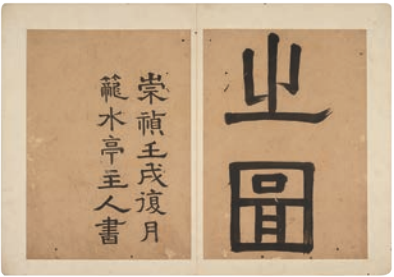 之圖
崇禎壬戌復月
籠水亭主人書